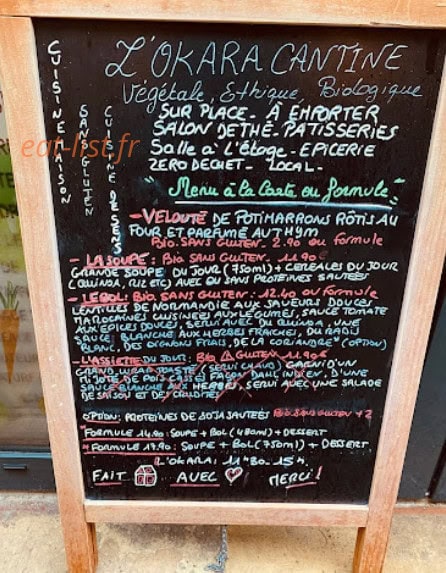 L'OKARA CANTINE
Végétale, Ethique, Biologique
CUISINE MAISON
SANS GLUTEN
CUISINE DE SENS
eat-list.fr
SUR PLACE - À EMPORTER
SALON DE THÉ - PATISSERIES
Salle à l'étage - EPICERIE
ZERO DECHET - LOCAL -
"Menu à la Carte ou formule"
- VELOUTÉ DE POTIMARRONS RÔTIS AU
FOUR ET PARFUMÉ AU THYM
BIO. SANS GLUTEN - 2.90 ou formule
- LA SOUPE : BIO SANS GLUTEN - 11.90€
GRANDE SOUPE DU JOUR (750ml) + CEREALES DU JOUR
(QUINOA, RIZ ETC) AVEC OU SANS PROTEINES SAUTÉES
- LE BOL : BIO. SANS GLUTEN - 12.40 ou formule
LENTILLES DE NORMANDIE AUX SAVEURS DOUCES
MAROCAINES CUISINÉES AUX LEGUMES, SAUCE TOMATE
AUX EPICES DOUCES, SERVI AVEC DU QUINOA, UNE
SAUCE BLANCHE AUX HERBES FRAICHES, DU RADIS
BLANC, DES OIGNONS FRAIS, DE LA CORIANDRE* (OPTION)
- L'ASSIETTE DU JOUR : BIO GLUTEN 11.90€
GRAND WRAP TOASTÉ (SERVI CHAUD) GARNI D'UN
MIJOTÉ DE POIS CASSÉS FAÇON DAHL INDIEN, D'UNE
SAUCE BLANCHE AUX HERBES, SERVI AVEC UNE SALADE
DE SAISON ET DES CRUDITÉS
OPTION : PROTEINES DE SOJA SAUTÉES BIO SANS GLUTEN + 2
FORMULE 14.90 : SOUPE + BOL (480ml) + DESSERT
FORMULE 17.90 : SOUPE + BOL (750ml) + DESSERT
L'OKARA : 11H30 - 15H.
FAIT AVEC MERCI !